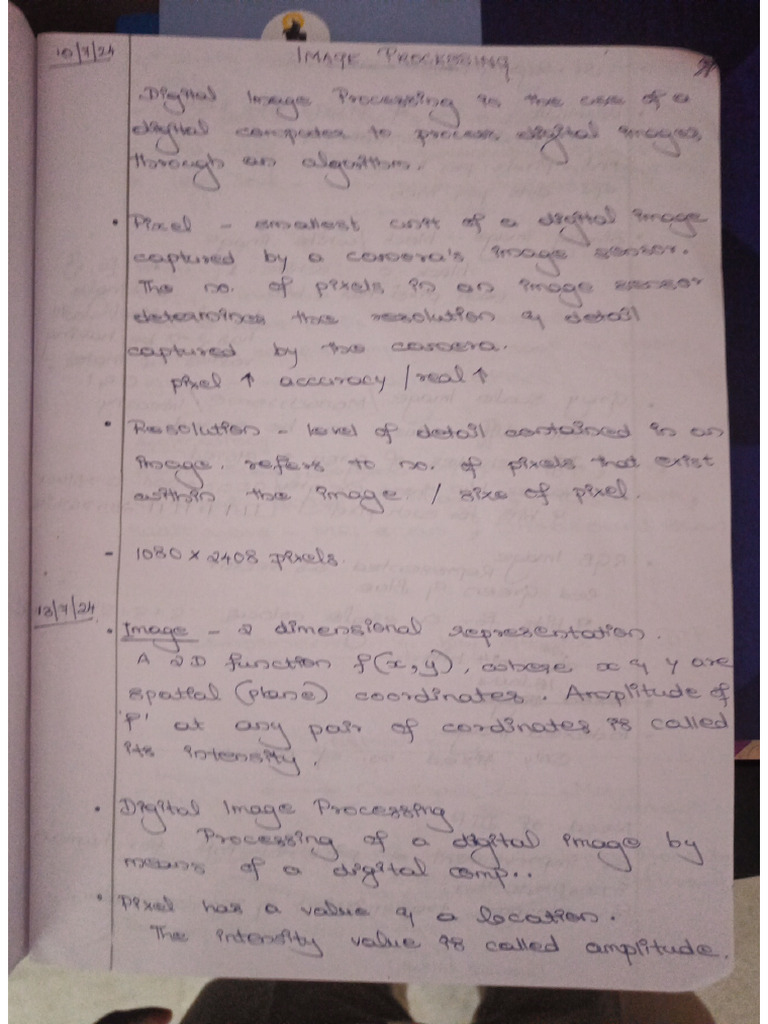 10/7/24
IMAGE PROCESSING
Digital Image Processing is the use of a
digital computer to process digital images
through an algorithm.
• Pixel - smallest unit of a digital image
captured by a camera's image sensor.
The no. of pixels in an image sensor
determines the resolution & detail
captured by the camera.
pixel ↑ accuracy / real ↑
• Resolution - level of detail contained in an
image. refers to no. of pixels that exist
within the image / size of pixel.
- 1080 x 2408 pixels.
13/7/24
• Image - 2 dimensional representation.
A 2D function f(x,y), where x & y are
spatial (plane) coordinates. Amplitude of
'f' at any pair of cordinates is called
its intensity.
• Digital Image Processing
Processing of a digital image by
means of a digital comp..
• Pixel has a value & a location.
The intensity value is called amplitude.